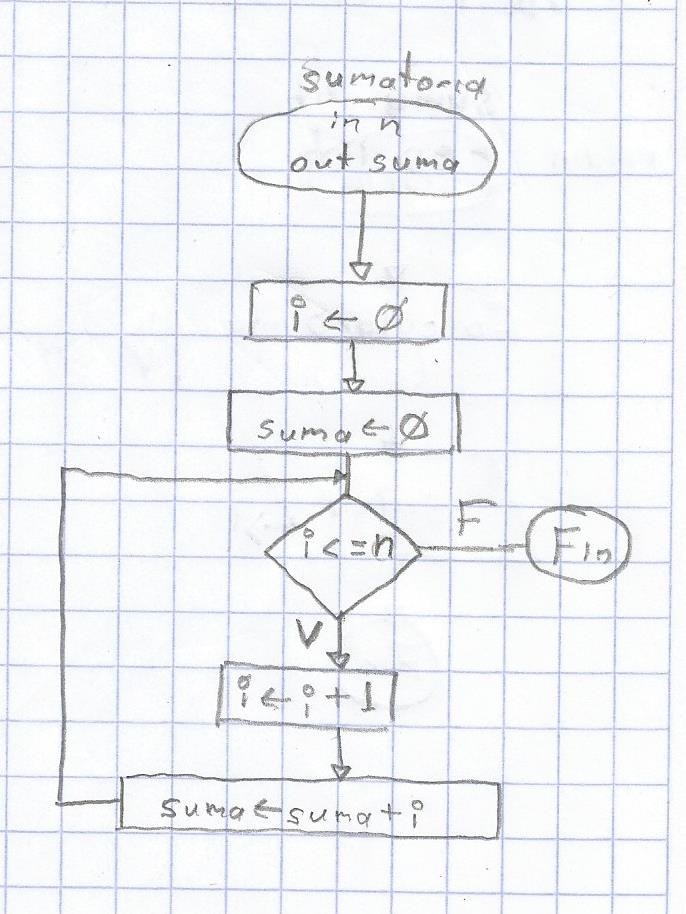 sumatoria
in n
out suma
i ← Ø
suma ← Ø
i <= n
F
Fin
V
i ← i + 1
suma ← suma + i